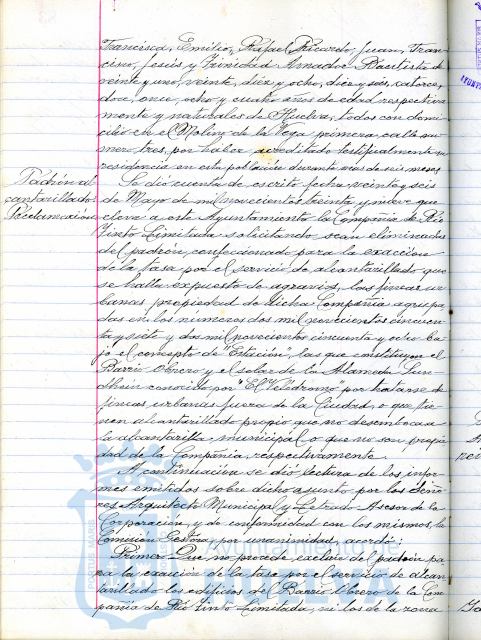 Francisca, Emilio, Rafael, Ricardo, Juan, Fran-
cisco, Jesús y Trinidad Amador Bautista de
veinte y uno, veinte, diez y ocho, diez y seis, catorce,
doce, once, ocho y cuatro años de edad respectiva
mente y naturales de Huelva, todos con domi
cilio en el Molino de la Vega primera calle nú
mero tres, por haber acreditado testificalmente su
residencia en esta población durante mas de seis meses
Padrón al
cantarillado
Reclamación
Se dió cuenta de escrito fecha veinte y seis
de Mayo de mil novecientos treinta y nueve que
eleva a este Ayuntamiento la Compañia de Rio
Tinto Limitada solicitando sean eliminadas
del padrón, confeccionado para la exacción
de la tasa por el servicio de alcantarillado que
se halla expuesto de agravios, las fincas ur
banas propiedad de dicha Compañia agrupa
das en los números dos mil novecientos cincuen
ta y siete y dos mil novecientos cincuenta y ocho ba
jo el concepto de "Estación", las que constituyen el
Barrio Obrero y el solar de la Alameda Sun
dheim conocido por "El Velódromo" por tratarse de
fincas urbanas fuera de la Ciudad, o que tie
nen alcantarillado propio que no desemboca a
la alcantarilla municipal o que no son propie
dad de la Compañia, respectivamente.
A continuación se dió lectura de los infor
mes emitidos sobre dicho asunto por los Seño
res Arquitecto Municipal y Letrado Asesor de la
Corporación, y de conformidad con los mismos, la
Comisión Gestora, por unanimidad, acordó:
Primero. Que no procede excluir del padrón pa
ra la exacción de la tasa por el servicio de alcan
tarillado los edificios del Barrio Obrero de la Com
pañia de Rio Tinto Limitada, ni los de la zona